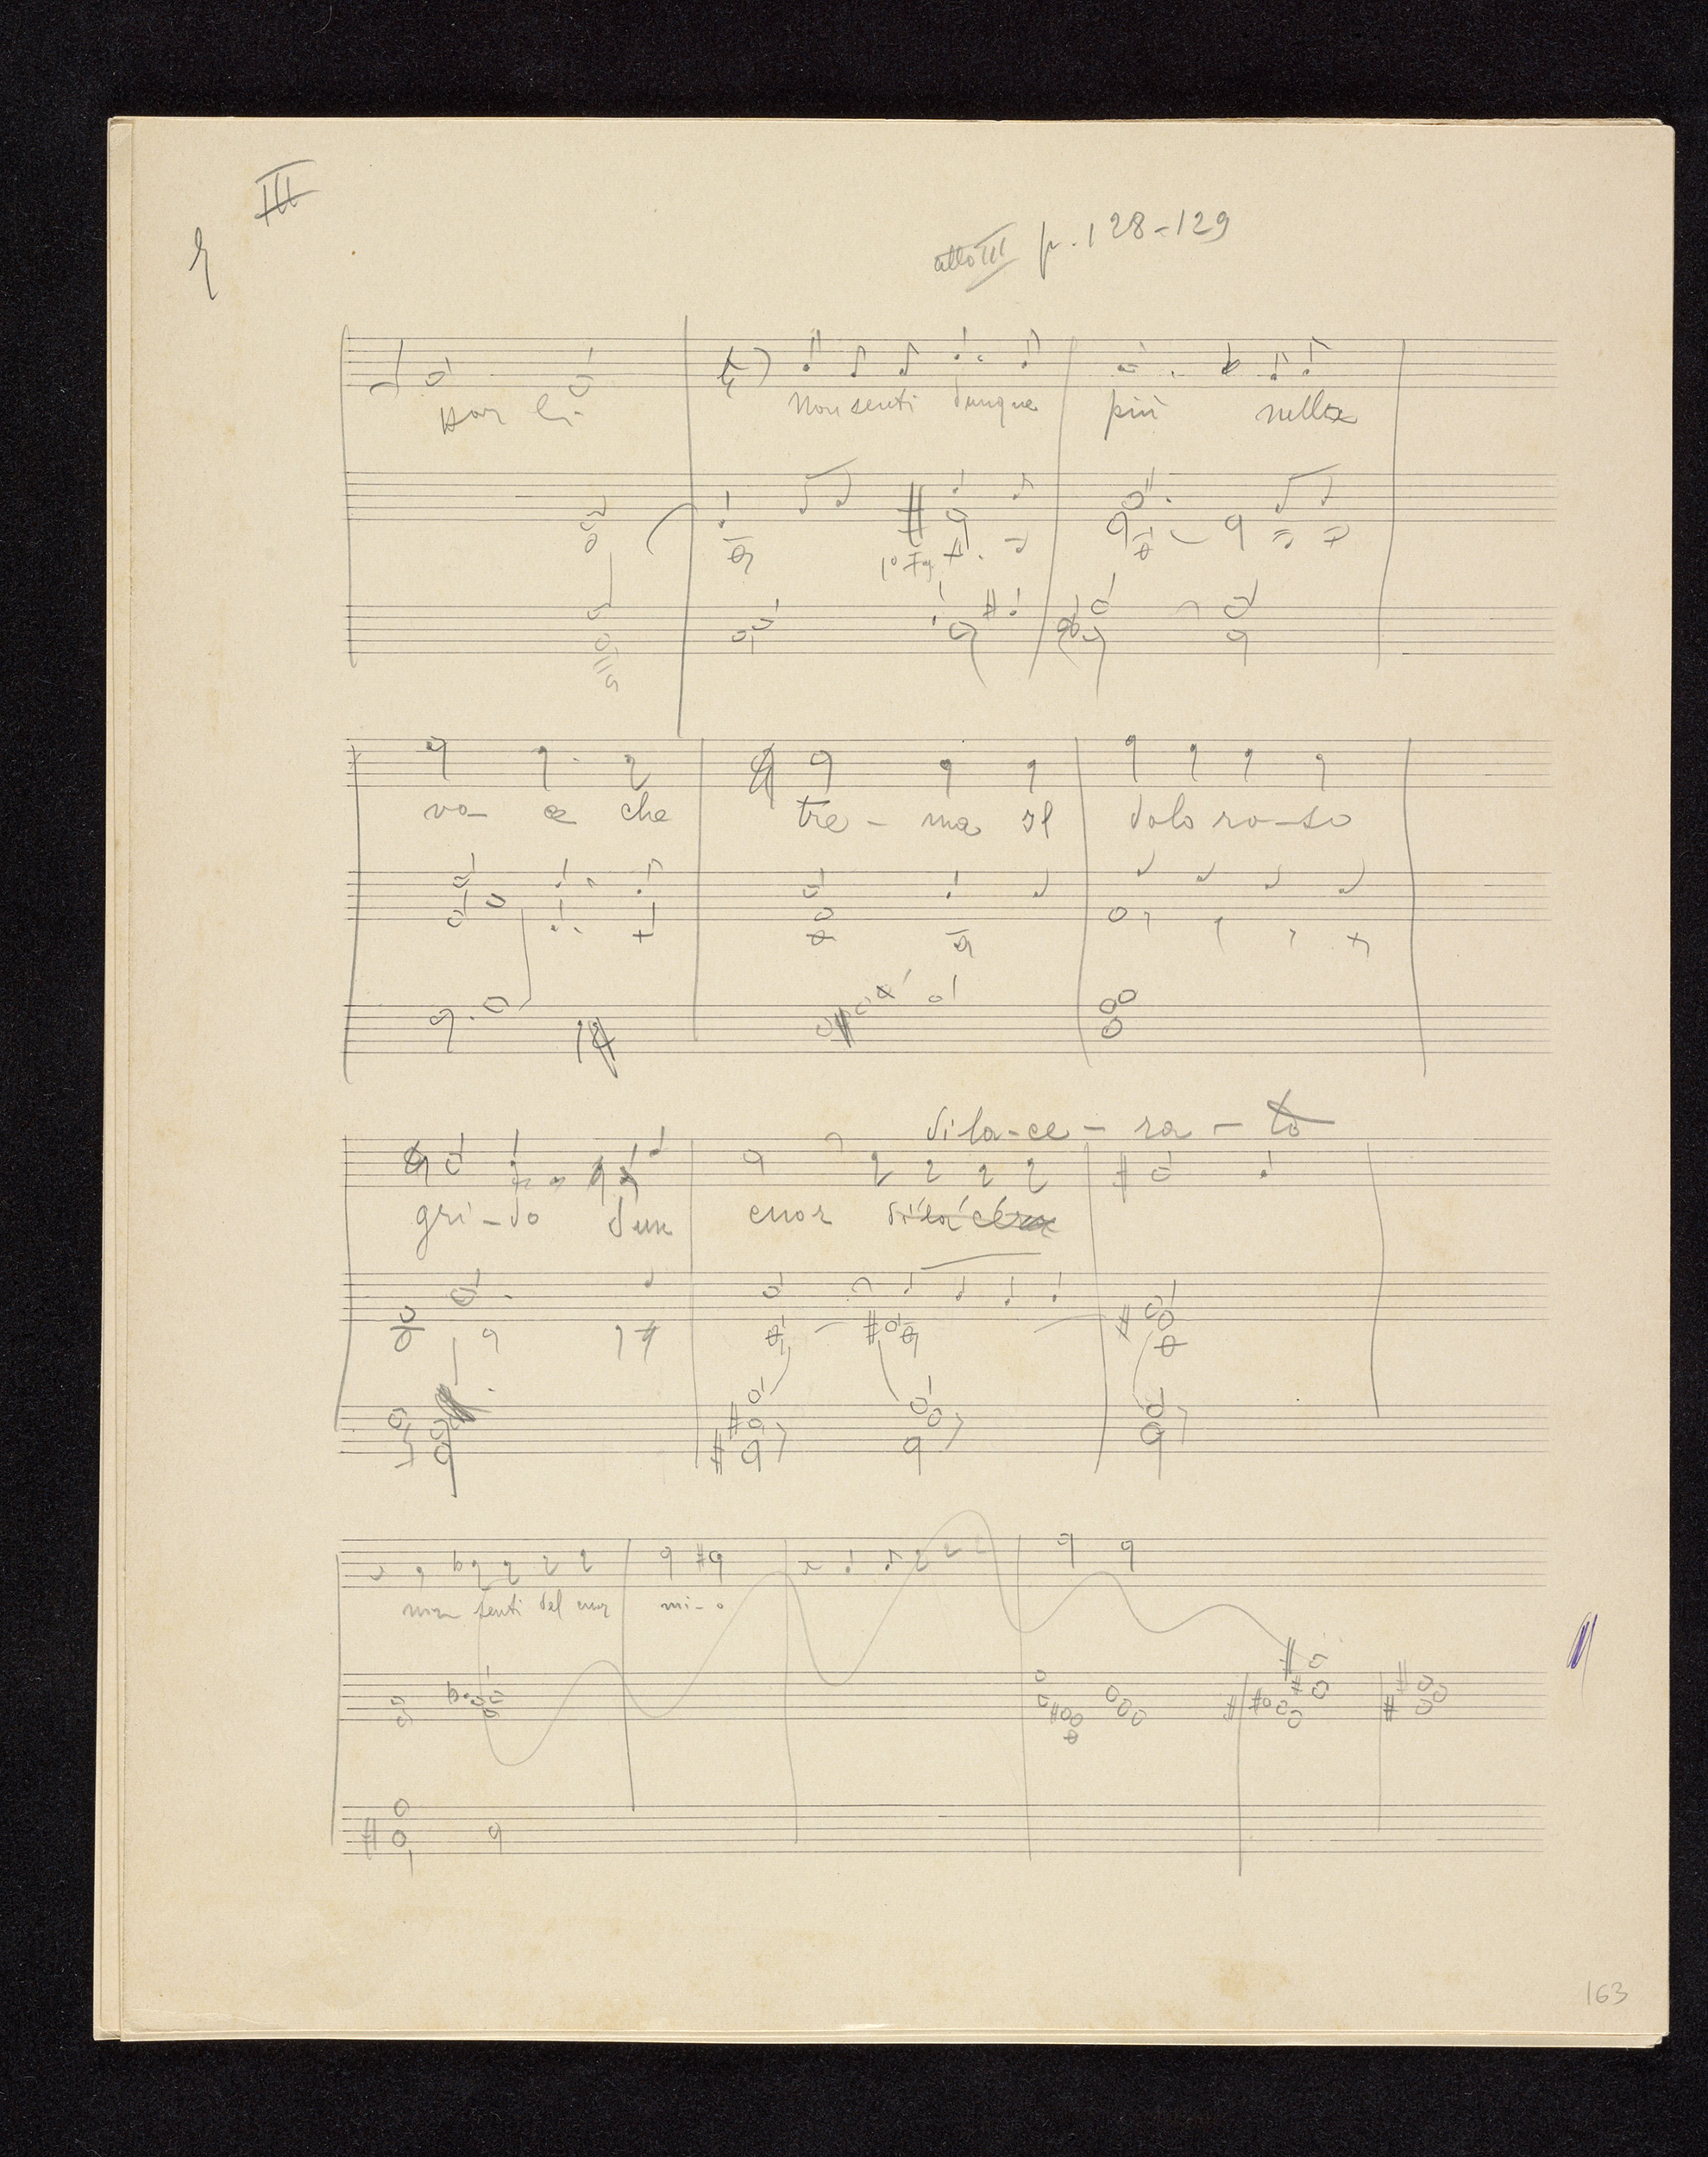 III
atto III p. 128-129
par li-
Non senti dunque più nella
1º Fg.
vo- ce che tre - ma il dolo ro-so
dila-ce - ra - to
gri-do d'un cuor dilacera
non senti del cuor mi-o
163